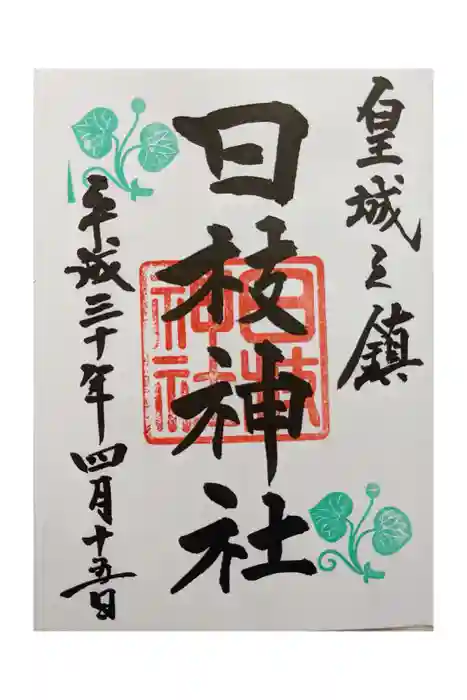 皇城之鎮
日枝神社
日枝神社
平成三十年四月十五日